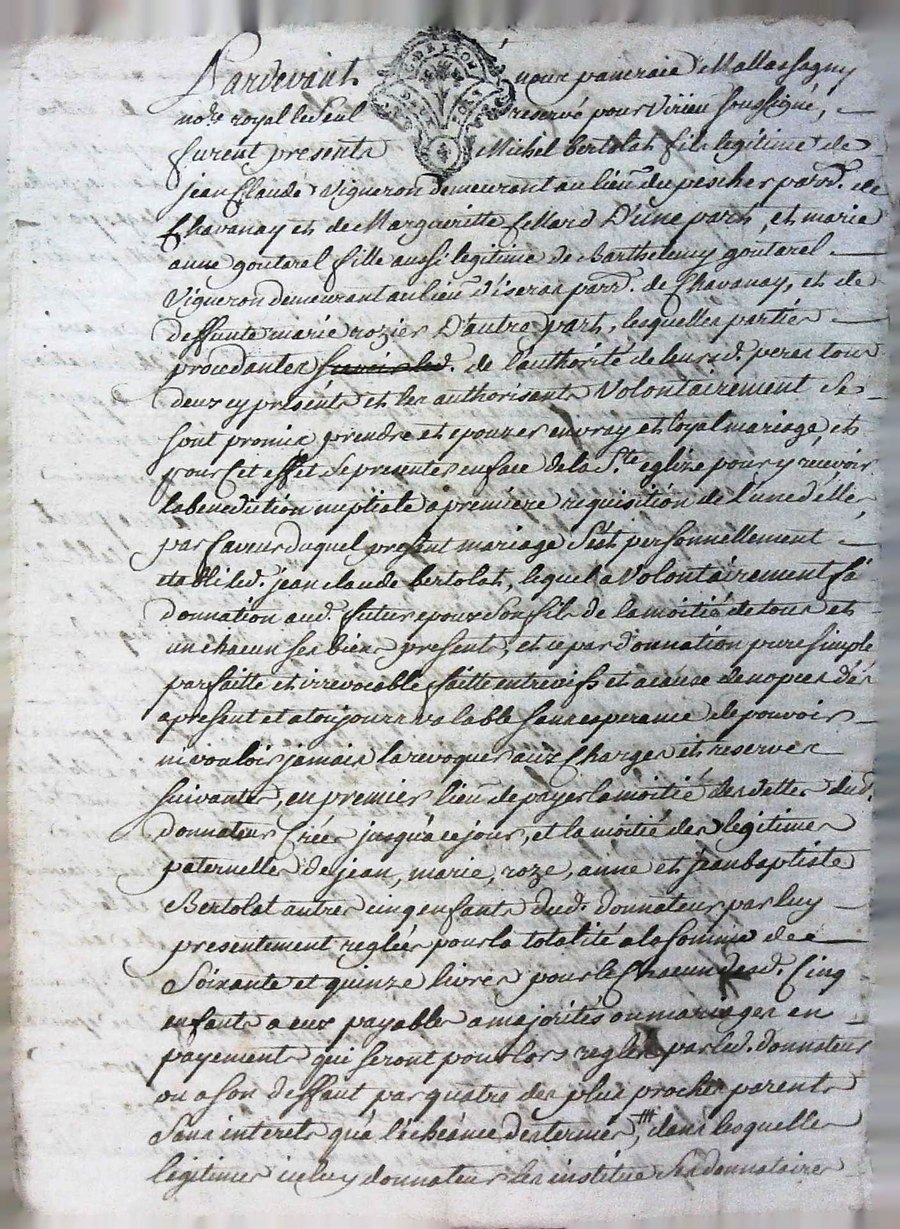 Pardevant noüe pancraie Mallassagny
no.re royal le Seul reservé pour Virieu Soussigné,
furent presents Michel Bertolat fils legitime de
jean Claude Vigneron demeurant au lieu du pescher parr.d de
Chavanay et de Margueritte fellard D'une part, et marie
anne goutarel fille aussi legitime de Barthelemy goutarel
Vigneron demeurant au lieu d'iseran parr.d de Chavanay, et de
deffunte marie rozier D'autre part, lesquelles parties
procedantes de l'authorité de leurs d. peres tous
deux cy presents et les authorisents Volontairement Se
Sont promis prendre et epouzer en vray et loyal mariage, et
pour Cet effet Se presenter en face de la S.te eglize pour y recevoir
la benediction nuptiale a premiere requisition de l'une d'elles,
par faveur duquel present mariage S'est personnellement
etabli led. jean claude Bertolat, lequel a Volontairement fá
donnation aud. futur epoux Son fils de la moitié de tous et
un chacun Ses biens presents, et ce par donnation pure Simple
parfaitte et irrevocable faitte entre vifs et a cause de nopces dés
apresent et atoujours valable Sans esperance de pouvoir
ni vouloir jamais la revoquer aux Charges et reserves
Suivantes, en premier lieu de payer la moitié des dettes dud.
donnateur Crées jusqu'a ce jour, et la moitié des legitimes
paternelle de jean, marie, roze, anne et jean baptiste
Bertolat autres cinq enfants dud. donnateur par luy
presentement reglées pour la totalité a la Somme de
Soixante et quinze livres pour le Chacun desd. Cinq
enfants a eux payables a majorités ou mariages en
payements qui Seront pour lors reglés par led. donnateur
ou a Son deffaut par quatre des plus proches parents
Sans interets qu'a l'echéance des termes, dans lesquelles
legitimes iceluy donnateur les institue Ses donnataires